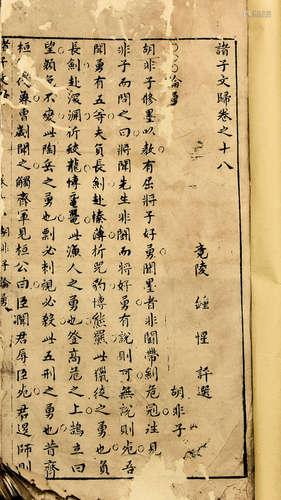 諸子文歸卷之十八
竟陵 鍾惺 評選
胡非子
論勇
胡非子修墨以教有屈將子好勇聞墨者非鬭帶劍危冠往見
非子而問之曰將聞先生非鬭而將好勇有說則可無說則死吾
聞勇有五等夫負長劍赴榛薄折兕豹搏熊羆此獵徒之勇也負
長劍赴深淵折蛟龍搏黿鼉此漁人之勇也登高危之上鵠立四
望顏色不變此陶岳之勇也剽必刺視必殺此五刑之勇也昔齊
桓魯曹劌聞之觸齊軍見桓公曰臣聞君辱臣死君退師則
諸子文 胡非子論勇